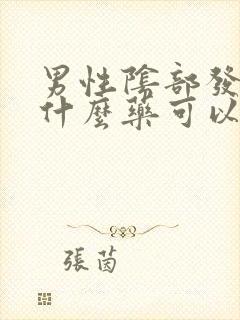 男性陰部發
什麼藥可以
張茵